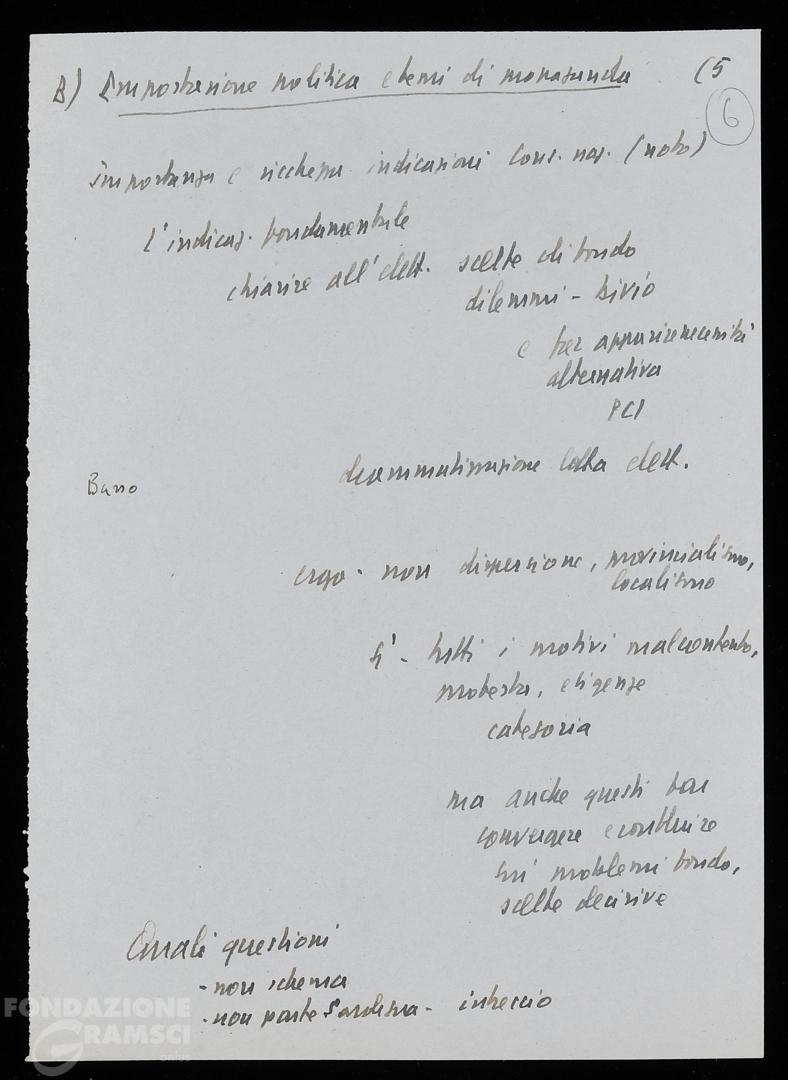 B) Impostazione politica e temi di propaganda (5
6
Importanza e ricchezza indicazioni Cons. naz. (noto)
L'indicaz. fondamentale
chiarire all'elett. scelte di fondo
dilemmi - bivio
e far apparire necessità
alternativa
PCI
drammatizzazione lotta elett.
Basso
ergo - non dispersione, provincialismo,
localismo
Sì - tutti i motivi malcontento,
protesta, esigenze
categoria
ma anche questi far
convergere e costruire
su problemi fondo,
scelte decisive
Quali questioni
- non schema
- non parte Sardegna - intreccio
FONDAZIONE
GRAMSCI
onlus